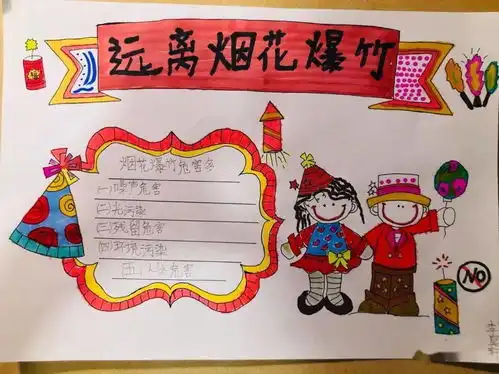 远离烟花爆竹
烟花爆竹危害多
(一)噪声危害
(二)光污染
(三)残留危害
(四)环境污染
危害
NO